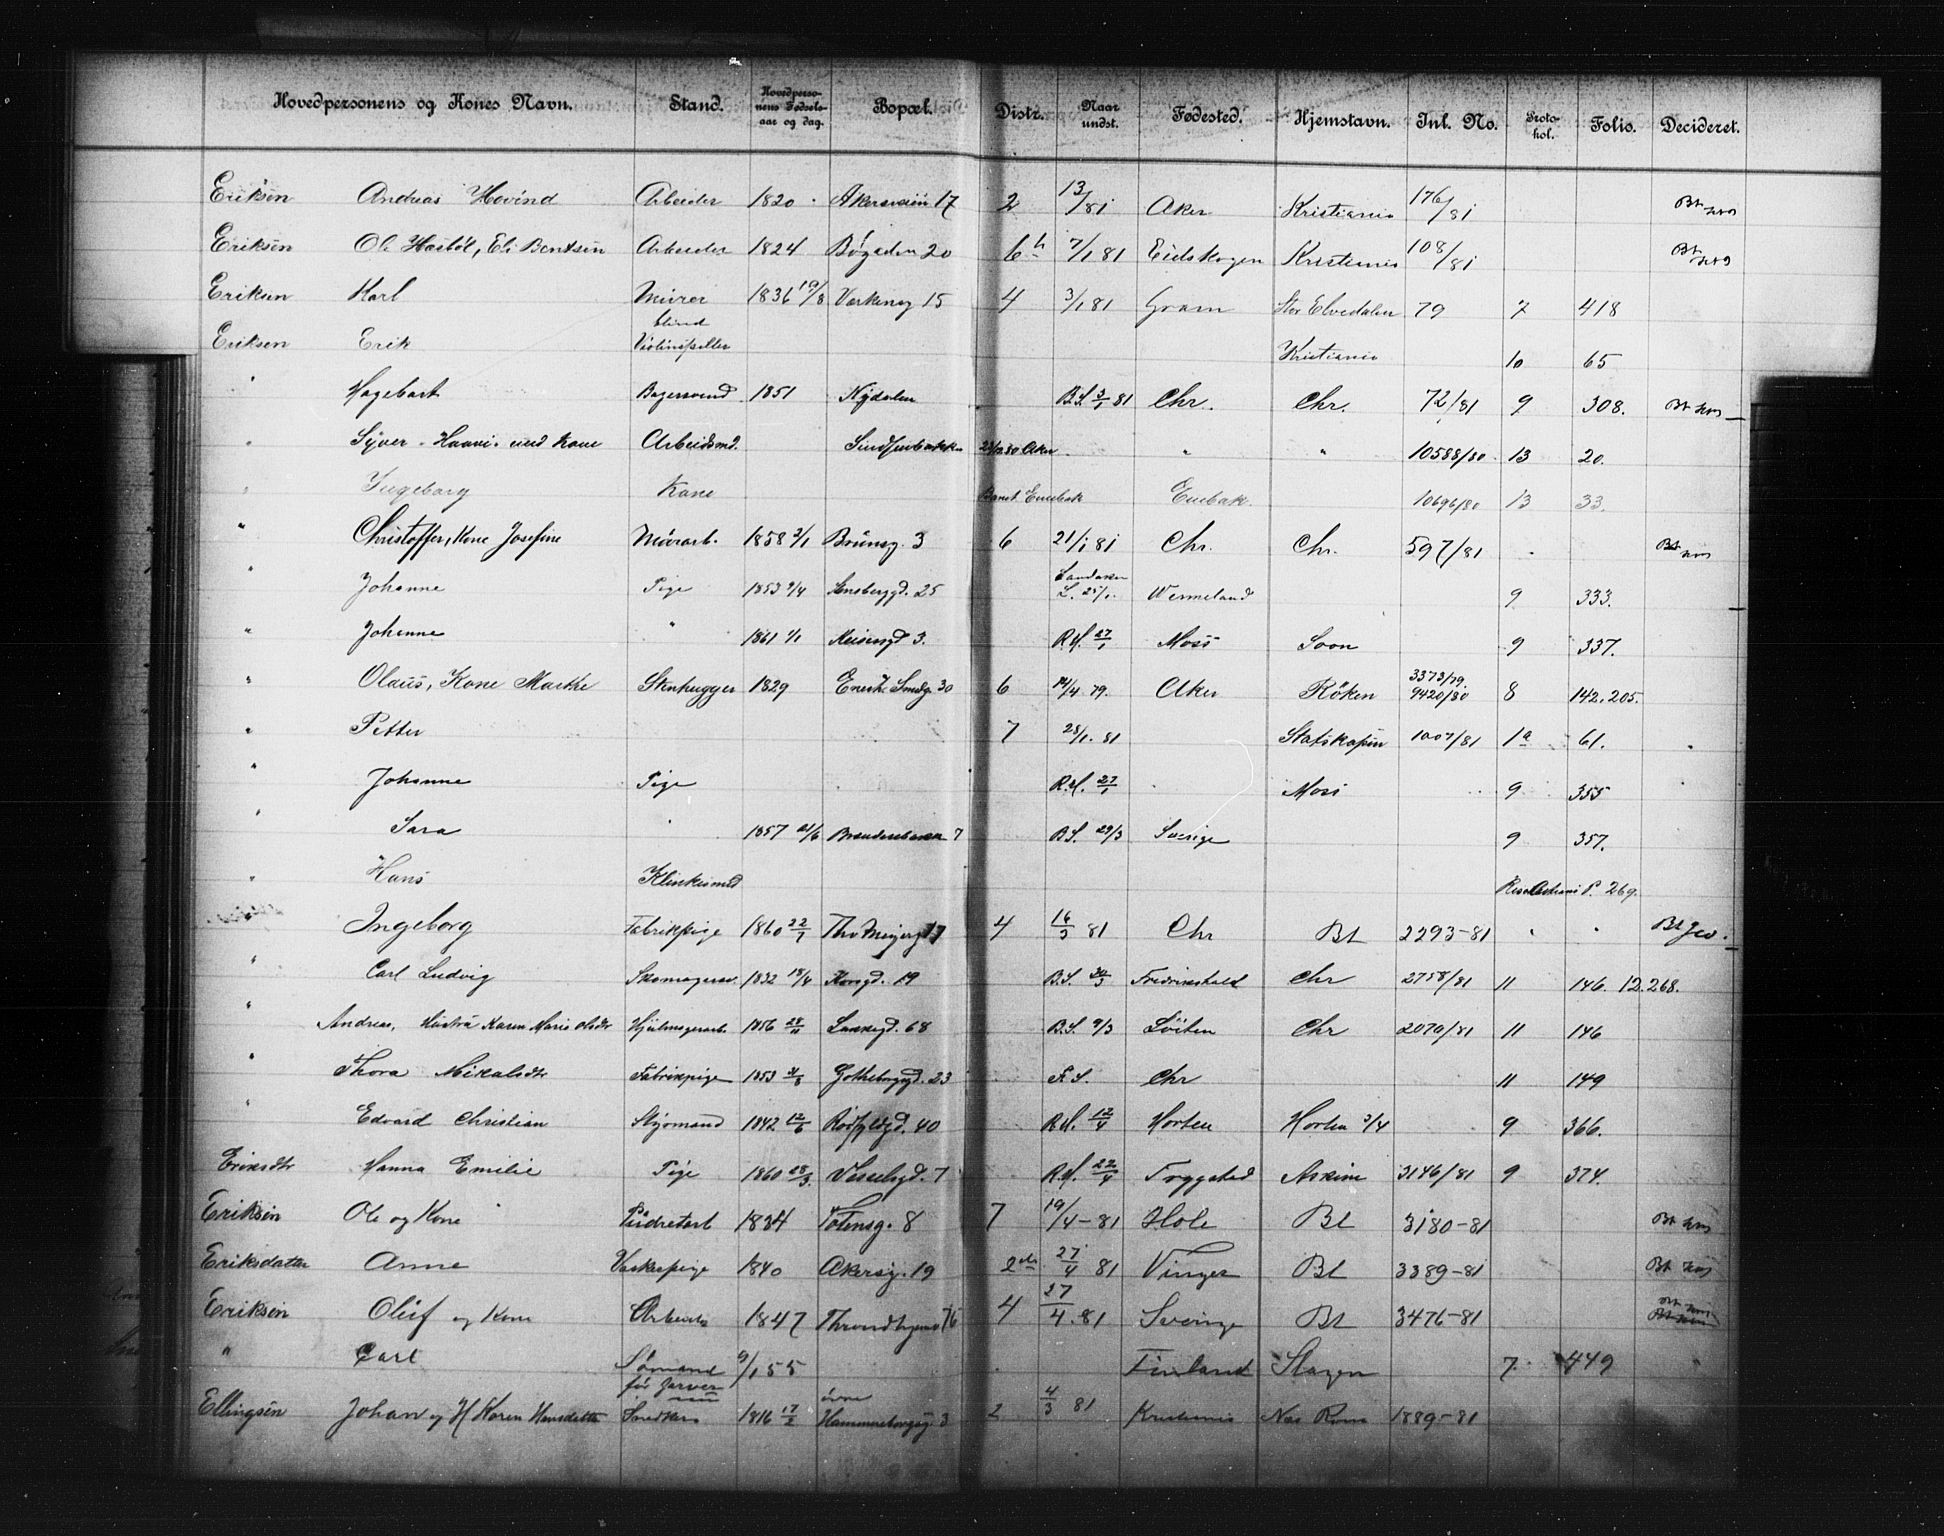 Hovedpersonens og Kones Navn. Stand. Hovedpersonens Fødselsaar og dag. Bopæl. Distr. Naar undst. Fødested. Hjemstavn. Inl. No. Protokol. Folio. Decideret.
Eriksen Andreas Hovind Arbeider 1820 Akersveien 17 2 13/81 Aker Kristiania 176/81 Bt
Eriksen Ole Hasböl, Eli Bentsen Arbeider 1824 Bøgaden 20 6 7/1 81 Eidskogen Kristiania 108/81 Bt
Eriksen Karl Murer 1836 19/8 Verksng 15 4 3/1 81 Gram Stor Elvedalen 79 7 418
Eriksen Erik blind Violinspiller Kristiania 10 65
" Hagebart Bagersvend 1851 Nydalen B.S. 3/1 81 Chr. Chr. 72/81 9 308. Bt
" Syver Haavi med Kone Arbeidsmd. Aker " " 10588/80 13 20.
" Ingeborg Kone Enebak Enebak. 10696/80 13 33.
" Christoffer, Kone Josefine Murarb. 1858 3/1 Brunsg. 3 6 21/1 81 Chr. Chr. 597/81 Bt
" Johanne Pige 1853 9/4 Tønsberggd. 25 L. 25/1 Wermeland 9 333.
" Johanne " 1861 1/1 3. R.H. 27/1 Moss Soon 9 337.
" Olaus, Kone Marthe Stenhugger 1829 Enerh. Smedg. 30 6 14/4 79. Aker Röken 3373/79. 9420/80 8 142. 205.
" Petter 7 28/1. 81 Statskassen 1007/81 1a 61.
" Johanne Pige R.H. 27/1 Moss 9 355
" Sara 1857 21/6 7 B.S. 29/3 Sverige 9 357.
" Hans P. 269.
" Ingeborg Fabrikpige 1860 22/7 Thv Meyersg 17 4 16/3 81 Chr Bt 2293-81 Bt
" Carl Ludvig Skomagersv. 1832 18/4 Korsgd. 19 B.S. 30/3 Fredrikshald Chr 2758/81 11 146. 12.268.
" Andreas, Hustru Karen Marie Olsdtr Hjulmagerarb 1856 28/11 68 B.S. 9/3 Löiten Chr 2070/81 11 146
" Thora Mikalsdtr Fabrikpige 1853 Gotheborggd. 23 F.S. Chr 11 149
" Edvard Christian Styrmand 1842 12/6 40 R.H. 12/4 Horten Horten 3/4 9 366.
Eriksdtr Hanna Emilie Pige 1860 28/3. Vesselsgd. 7 R.H. 22/4 Trygstad Askim 3146/81 9 374.
Eriksen Ole og Kone 1834 Totensg. 8 7 19/4-81 Hole Bt 3180-81 Bt
Eriksdatter Anne Vaskepige 1840 Akersg. 19 2 27/4 81 Vinger Bt 3389-81 Bt
Eriksen Oluf og Kone Arbeider 1847 Throndhjemsv 76 4 27/4.81 Sverige Bt 3476-81 Bt
" Carl Sømand 9/1 55 Finland Skagen 7. 449
Ellingsen Johan og H Karen Hansdatter før Farver nu Snedker 1816 17/2 øvre Hammersborgsg. 3 2 4/3 81 Kristiania Nes Rom 1889-81